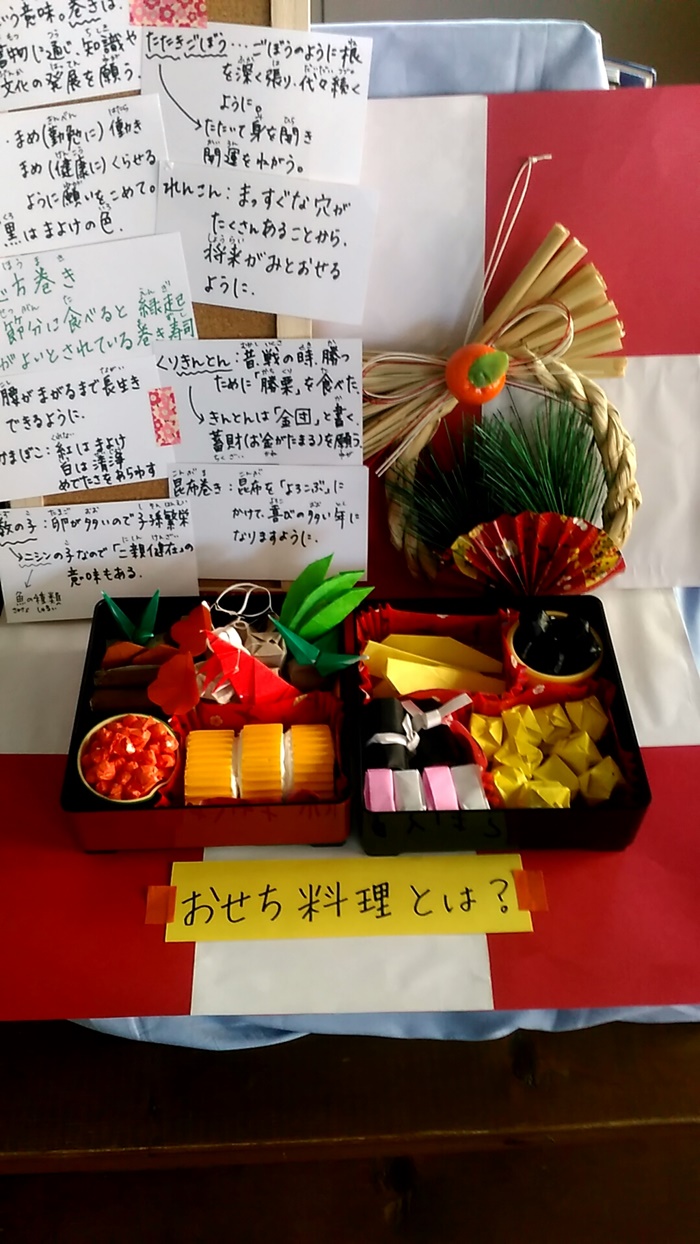 いう意味。巻きは、
書物に通じ、知識や
文化の発展を願う。
たたきごぼう…ごぼうのように根
を深く張り、代々続く
ように。
→たたいて身を開き
開運をねがう。
・まめ(勤勉に)働き
まめ(健康に)くらせる
ように願いをこめて。
黒はまよけの色。
れんこん:まっすぐな穴が
たくさんあることから、
将来がみとおせる
ように。
方巻き
節分に食べると縁起
がよいとされている巻き寿司
くりきんとん:昔、戦の時、勝つ
ために「勝栗」を食べた。
→きんとんは「金団」と書く。
蓄財(お金がたまる)を願う。
腰がまがるまで長生き
できるように。
かまぼこ:紅はまよけ
白は清浄
めでたさをあらわす
昆布巻き:昆布を「よろこぶ」に
かけて、喜びの多い年に
なりますように。
数の子:卵が多いので子孫繁栄
→ニシンの子なので「二親健在」の
意味もある。
魚の種類
おせち料理とは?